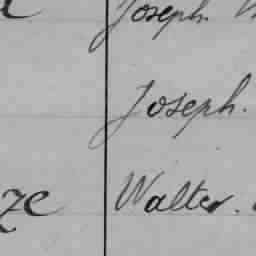 Joseph.
Joseph.
ze Walter.